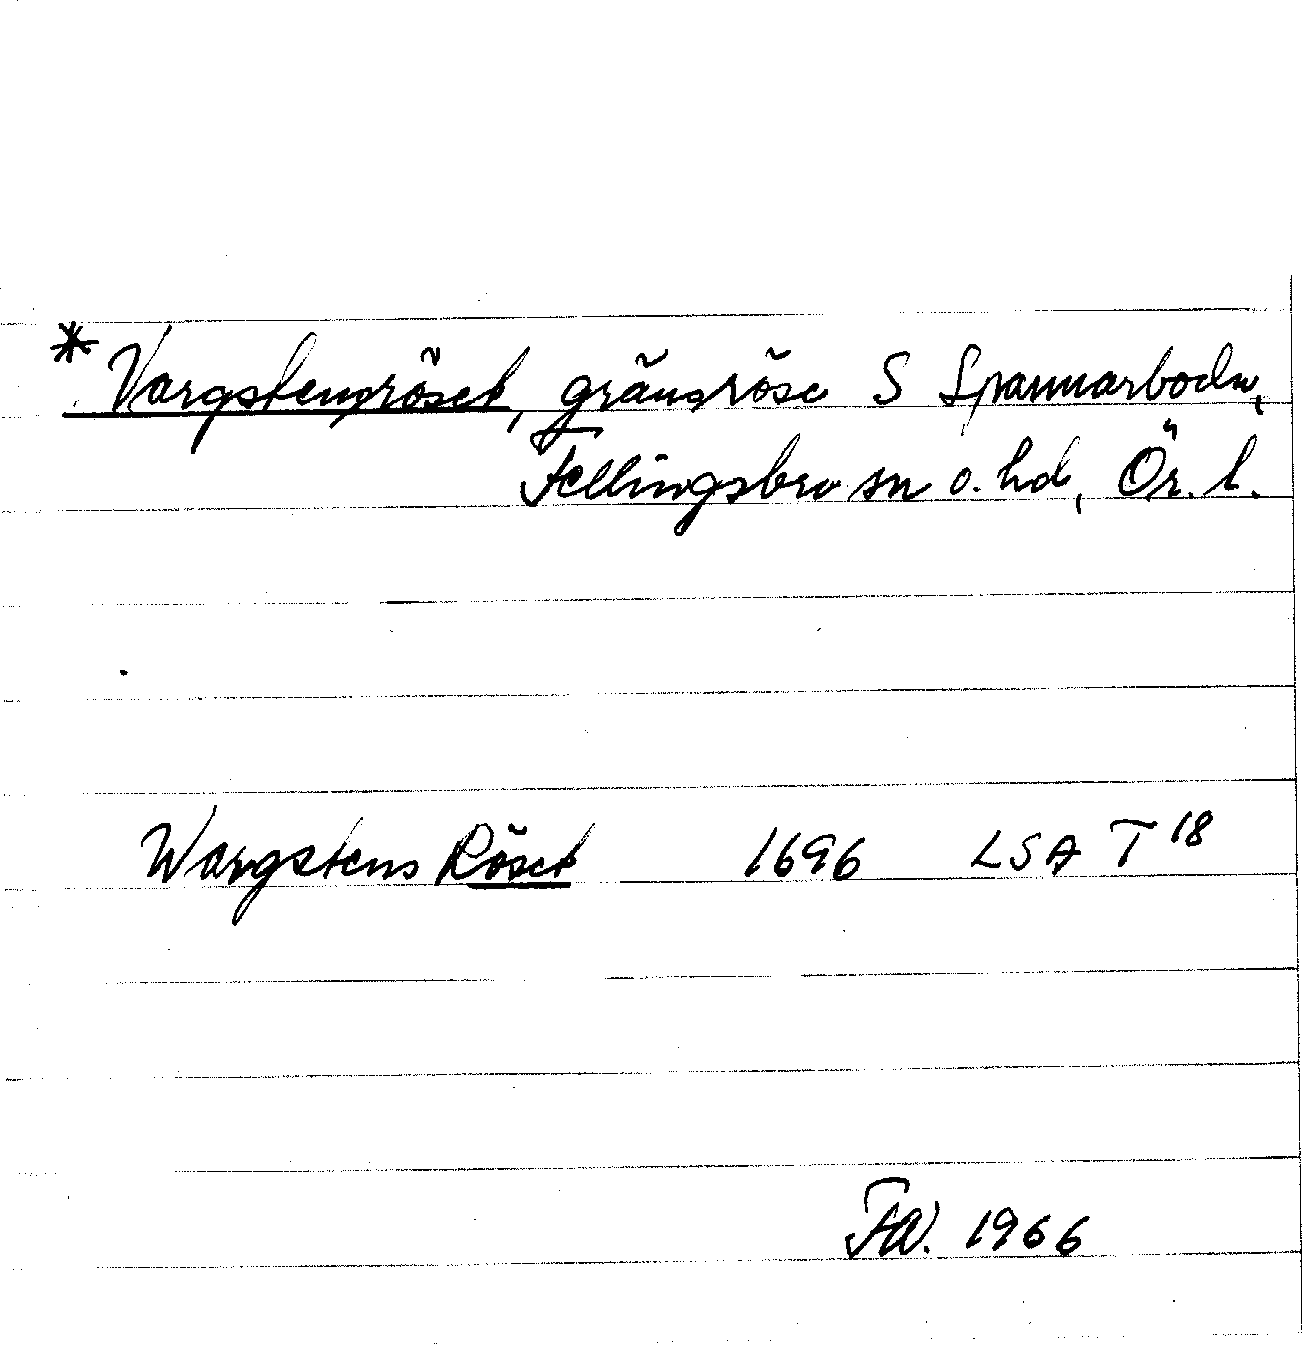 * Vargstensröset, gränsröse S Spannarboda,
Fellingsbro sn o. hd, Ör. l.
Wargstens Röset 1696 LSA T 18
FW. 1966